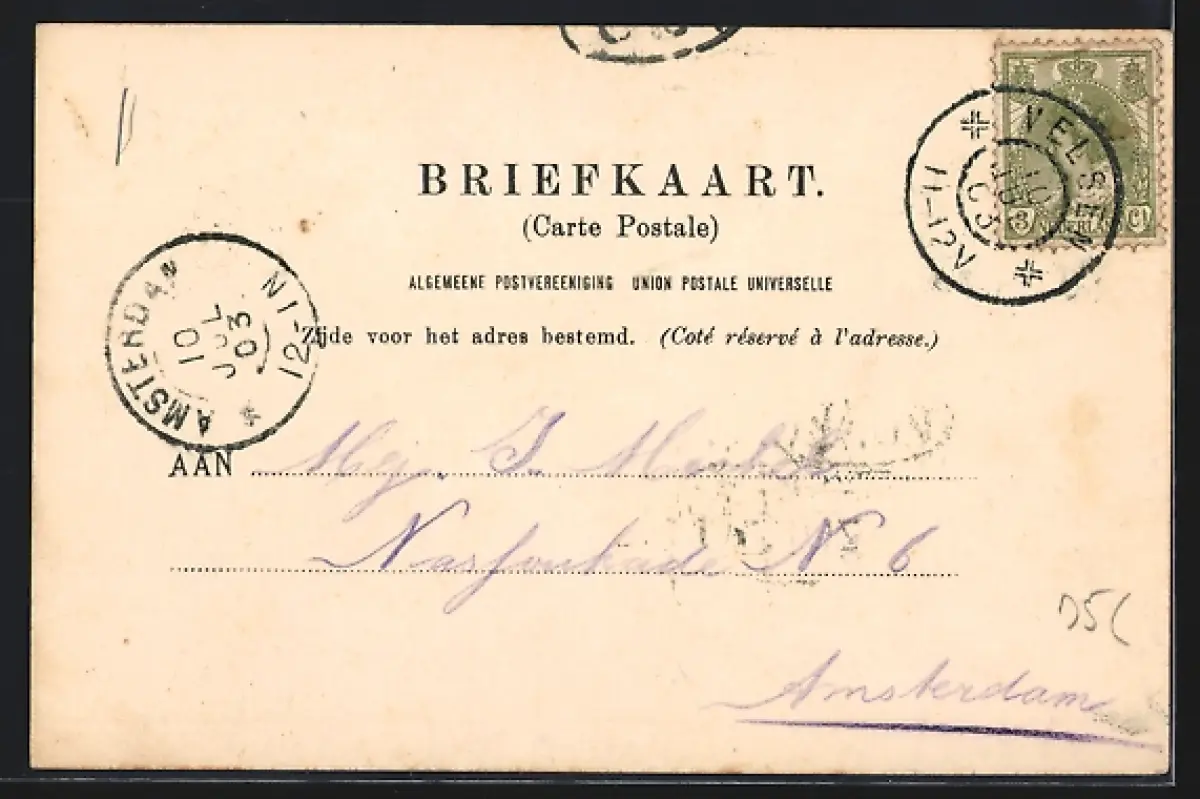 VELSEN
10 JUL 03
11-12V
3 Ct
NEDERLAND
BRIEFKAART.
(Carte Postale)
ALGEMEENE POSTVEREENIGING UNION POSTALE UNIVERSELLE
Zijde voor het adres bestemd. (Coté réservé à l'adresse.)
AMSTERDAM
10 JUL 03
12-1N
AAN Mej. J.
N 6
Amsterdam